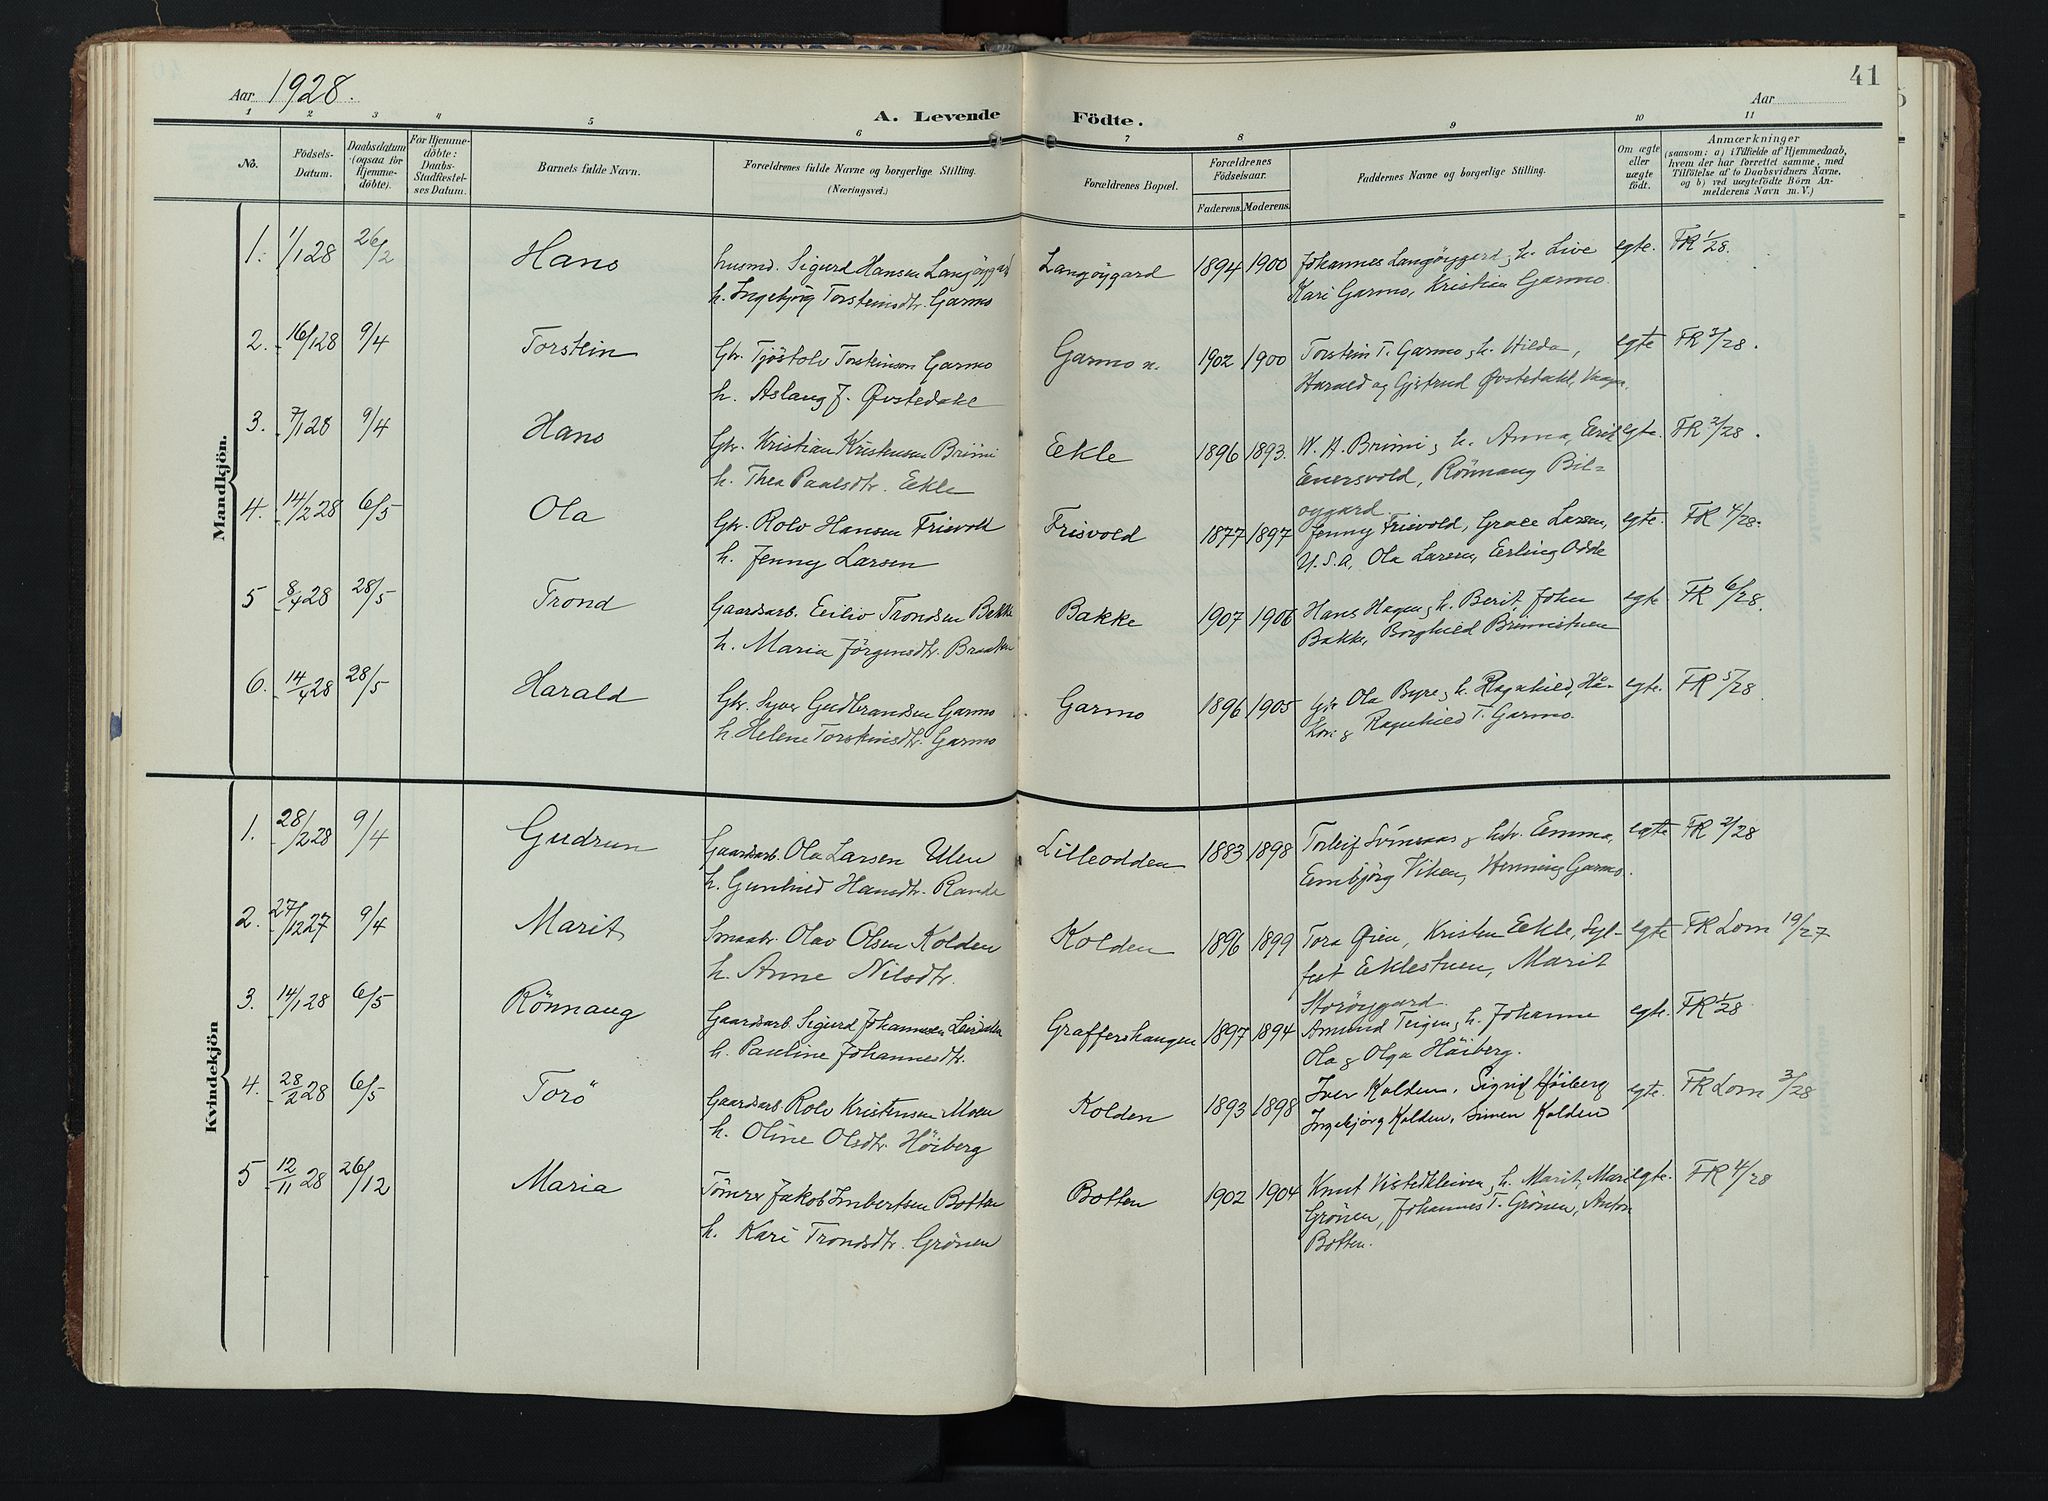 41
Aar 1928.
Aar
A. Levende Födte.
1 2 3 4 5 6 7 8 9 10 11
No.
Födsels-Datum.
Daabsdatum (ogsaa for Hjemmedöbte).
For Hjemmedöbte: Daabs-Stadfæstelses Datum.
Barnets fulde Navn.
Forældrenes fulde Navne og borgerlige Stilling.
(Næringsvei.)
Forældrenes Bopæl.
Forældrenes Födselsaar.
Faderens. Moderens.
Faddernes Navne og borgerlige Stilling.
Om ægte eller uægte födt.
Anmærkninger
(saasom: a) i Tilfælde af Hjemmedaab,
hvem der har forrettet samme, med
Tilföielse af to Daabsvidners Navne,
og b) ved uægtefödte Börn Anmelderens Navn m. V.)
Mandkjön.
1. 1/1 28 26/2 Hans husmd. Sigurd Hansen Langöygard Langöygard 1894 1900 Johannes Langöygard, h. Live egte. FR 1/28.
h. Ingebjörg Torsteinsdtr. Garmo Kari Garmo, Kristian Garmo.
2. 16/1 28 9/4 Torstein Gbr. Tjöstolv Torsteinson Garmo Garmo n. 1902 1900 Torstein T. Garmo, h. Hilda, egte FR 2/28.
h. Aslaug J. Øvstedahl Harald og Gjertrud Øvstedahl, Vaage.
3. 7/1 28 9/4 Hans Gbr. Kristian Kristensen Brimi Eekle 1896 1893. W. A. Brimi, h. Anna, Eerik egte. FR 2/28.
h. Thea Paalsdtr. Eekle Enersvold, Rönnaug Bil-
öygard
4. 14/2 28 6/5 Ola Gbr. Rolv Hansen Frisvold Frisvold 1877 1897 Jenny Frisvold, Grace Larsen, egte. FR 4/28.
h. Jenny Larsen U.S.A, Ola Larsen, Eerling Odde
5 8/4 28 28/5 Trond Gaardsarb. Eeiliv Trondsen Bakke Bakke 1907 1906 Hans Hagen, h. Berit, John egte FR 6/28.
h. Maria Jörgensdtr. Braaten Bakke, Borghild Brimistuen
6. 14/4 28 28/5 Harald Gbr. Syver Gudbrandsen Garmo Garmo 1896 1905 Gbr Ola Byre, h. Ragnhild, Hå- egte. FR 5/28
h. Helene Torsteinsdtr. Garmo kon & Ragnhild T. Garmo.
Kvindekjön
1. 28/2 28 9/4 Gudrun Gaardsarb. Ola Larsen Ulen Lilleodden 1883 1898 Torleif & hstr. Eemma, egte FR 2/28
h. Gunhild Hansdtr. Randa Eembjörg Viken, Henning Garmo.
2. 27/12 27 9/4 Marit Smaabr. Olav Olsen Kolden Kolden 1896 1899 Tora Øien, Kristen Eekle, Syl- egte FR Lom 19/27
h. Anne Nilsdtr. fest Eeklestuen, Marit
Storöygard.
3. 14/1 28 6/5 Rönnaug Gaardsarb. Sigurd Johannesen Graffershaugen 1897 1894 Amund Teigen, h. Johanne egte. FR 1/28
h. Pauline Johannesdtr. Ola & Olga Höiberg.
4. 28/2 28 6/5 Torö Gaardsarb Rolv Kristensen Moen Kolden 1893 1898 Iver Kolden, Sigrid Höiberg egte. FR Lom 3/28
h. Oline Olsdtr. Höiberg Ingebjörg Kolden, Simen Kolden
5 12/11 28 26/12 Maria Tömrer Jakob Imbertsen Botten Botten 1902 1904 Knut Vistedkleiven, h. Marit, Mari egte. FR 4/28
h. Kari Trondsdtr. Grönen Grönen, Johannes T. Grönen, Anton
Botten.